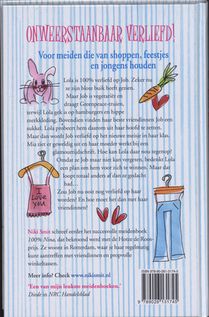 ONWEERSTAANBAAR VERLIEFD!
Voor meiden die van shoppen, feestjes
en jongens houden
Lola is 100% verliefd op Job. Zeker nu
ze zijn blote buik heeft gezien.
Maar Job is vegetariër en
draagt Greenpeace-truien,
terwijl Lola gek is op hamburgers en hippe
merkkleding. Bovendien vinden haar beste vriendinnen Job een
sukkel. Lola probeert hem daarom uit haar hoofd te zetten.
Maar dan wordt Job verliefd op het nieuwe meisje in haar klas.
Mia ziet er geweldig uit en haar moeder werkt bij een
glamourtijdschrift. Hoe kan Lola daar nou tegenop?
Omdat ze Job maar niet kan vergeten, bedenkt Lola
een plan om hem voor zich te winnen. Maar dat
loopt totaal anders af dan ze gedacht
had...
Zou Job nu ooit nog verliefd op haar
worden? En wil ze dat eigenlijk wel?
I
LOVE
YOU
Niki Smit schreef eerder het succesvolle meidenboek
100% Nina, dat bekroond werd met de Hotze de Roos-
prijs. Ze woont in Rotterdam, waar je haar regelmatig
kunt aantreffen met vriendinnen en propvolle
winkeltassen.
Meer info? Check www.nikismit.nl
'Een van mijn leukste meidenboeken.'
Divide in NRC Handelsblad